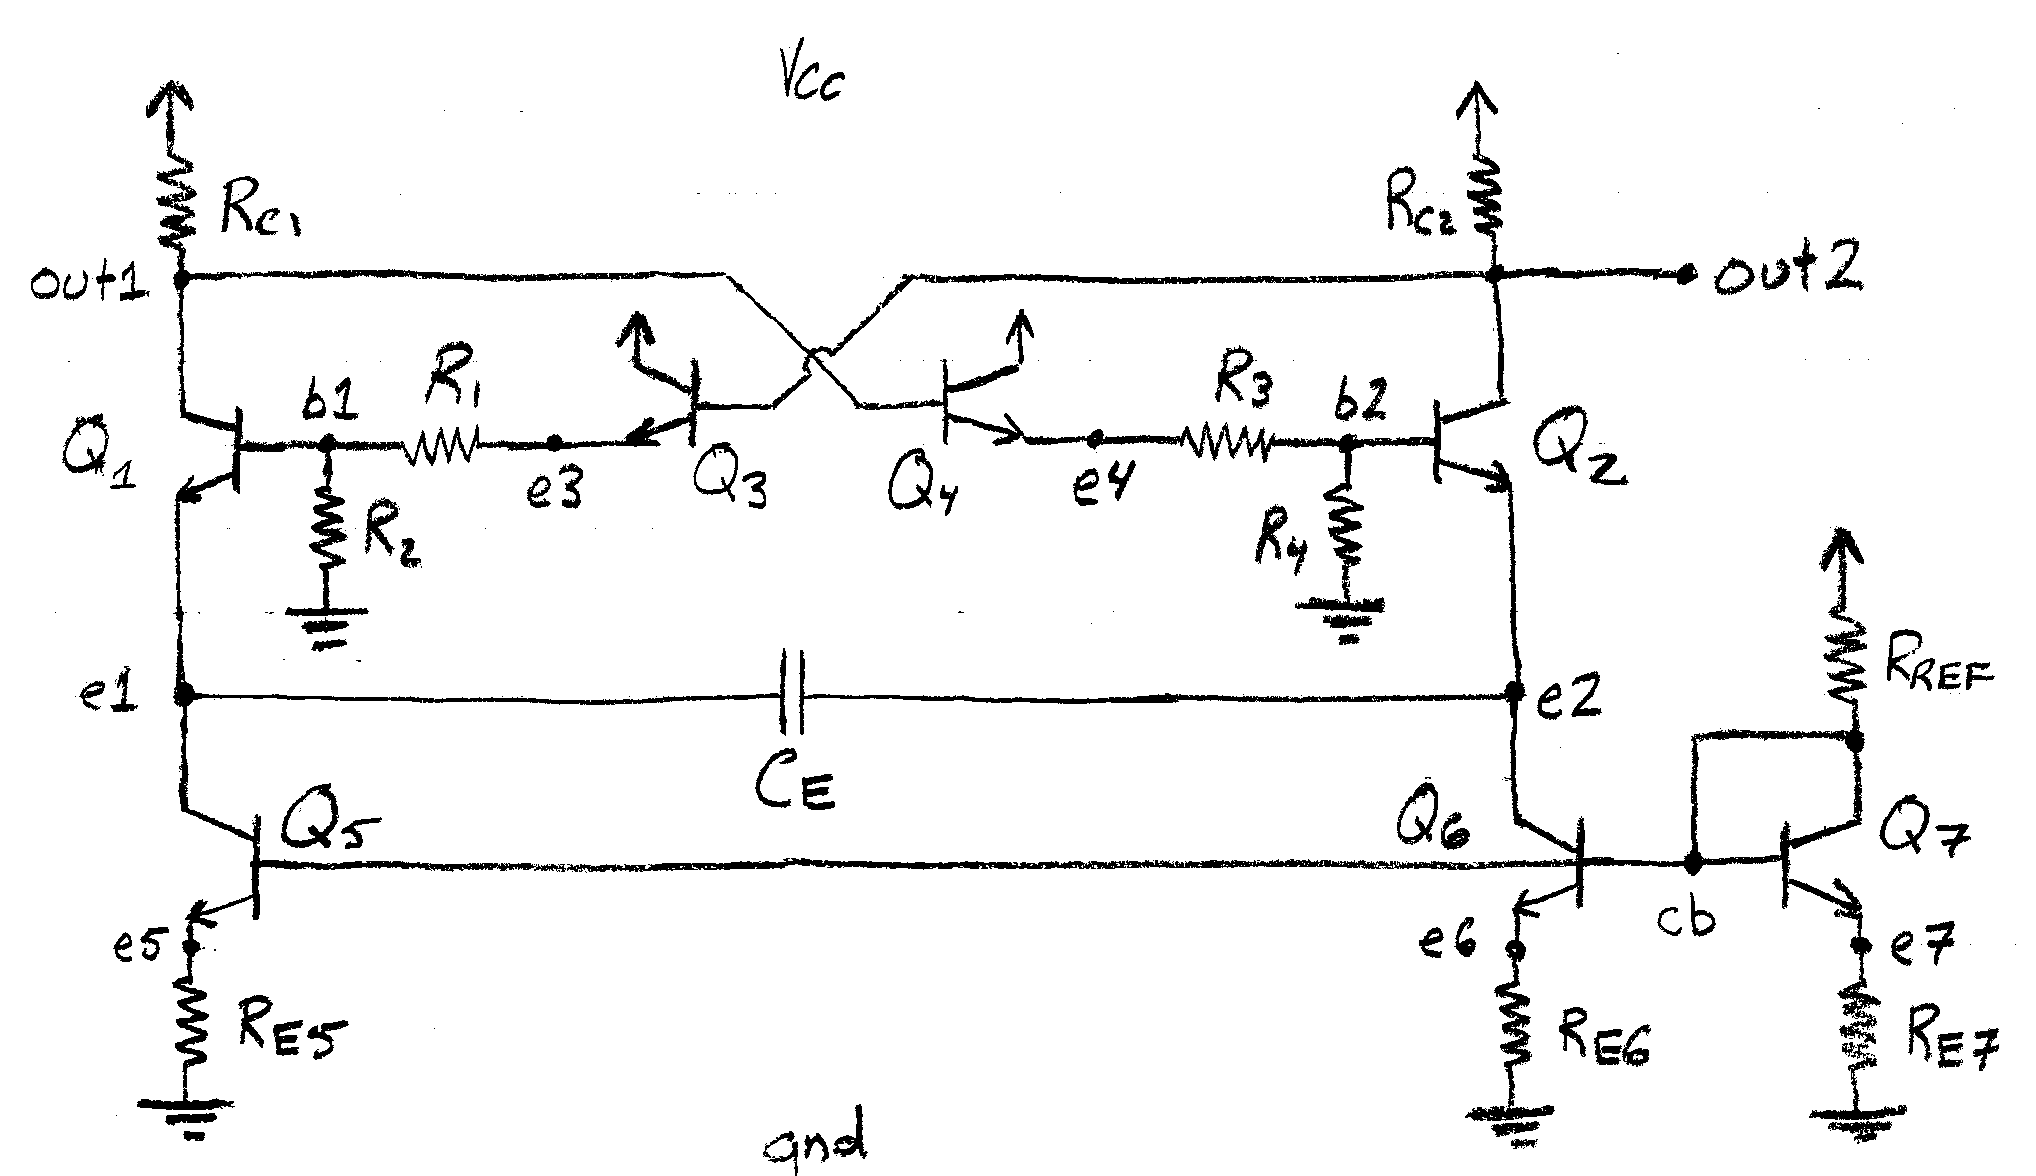 Vcc
RC1
RC2
out1
out2
R1
R3
b1
b2
Q1
Q2
e3
Q3
Q4
e4
R2
R4
RREF
e1
e2
CE
Q5
Q6
Q7
cb
e5
e6
e7
RE5
RE6
RE7
gnd